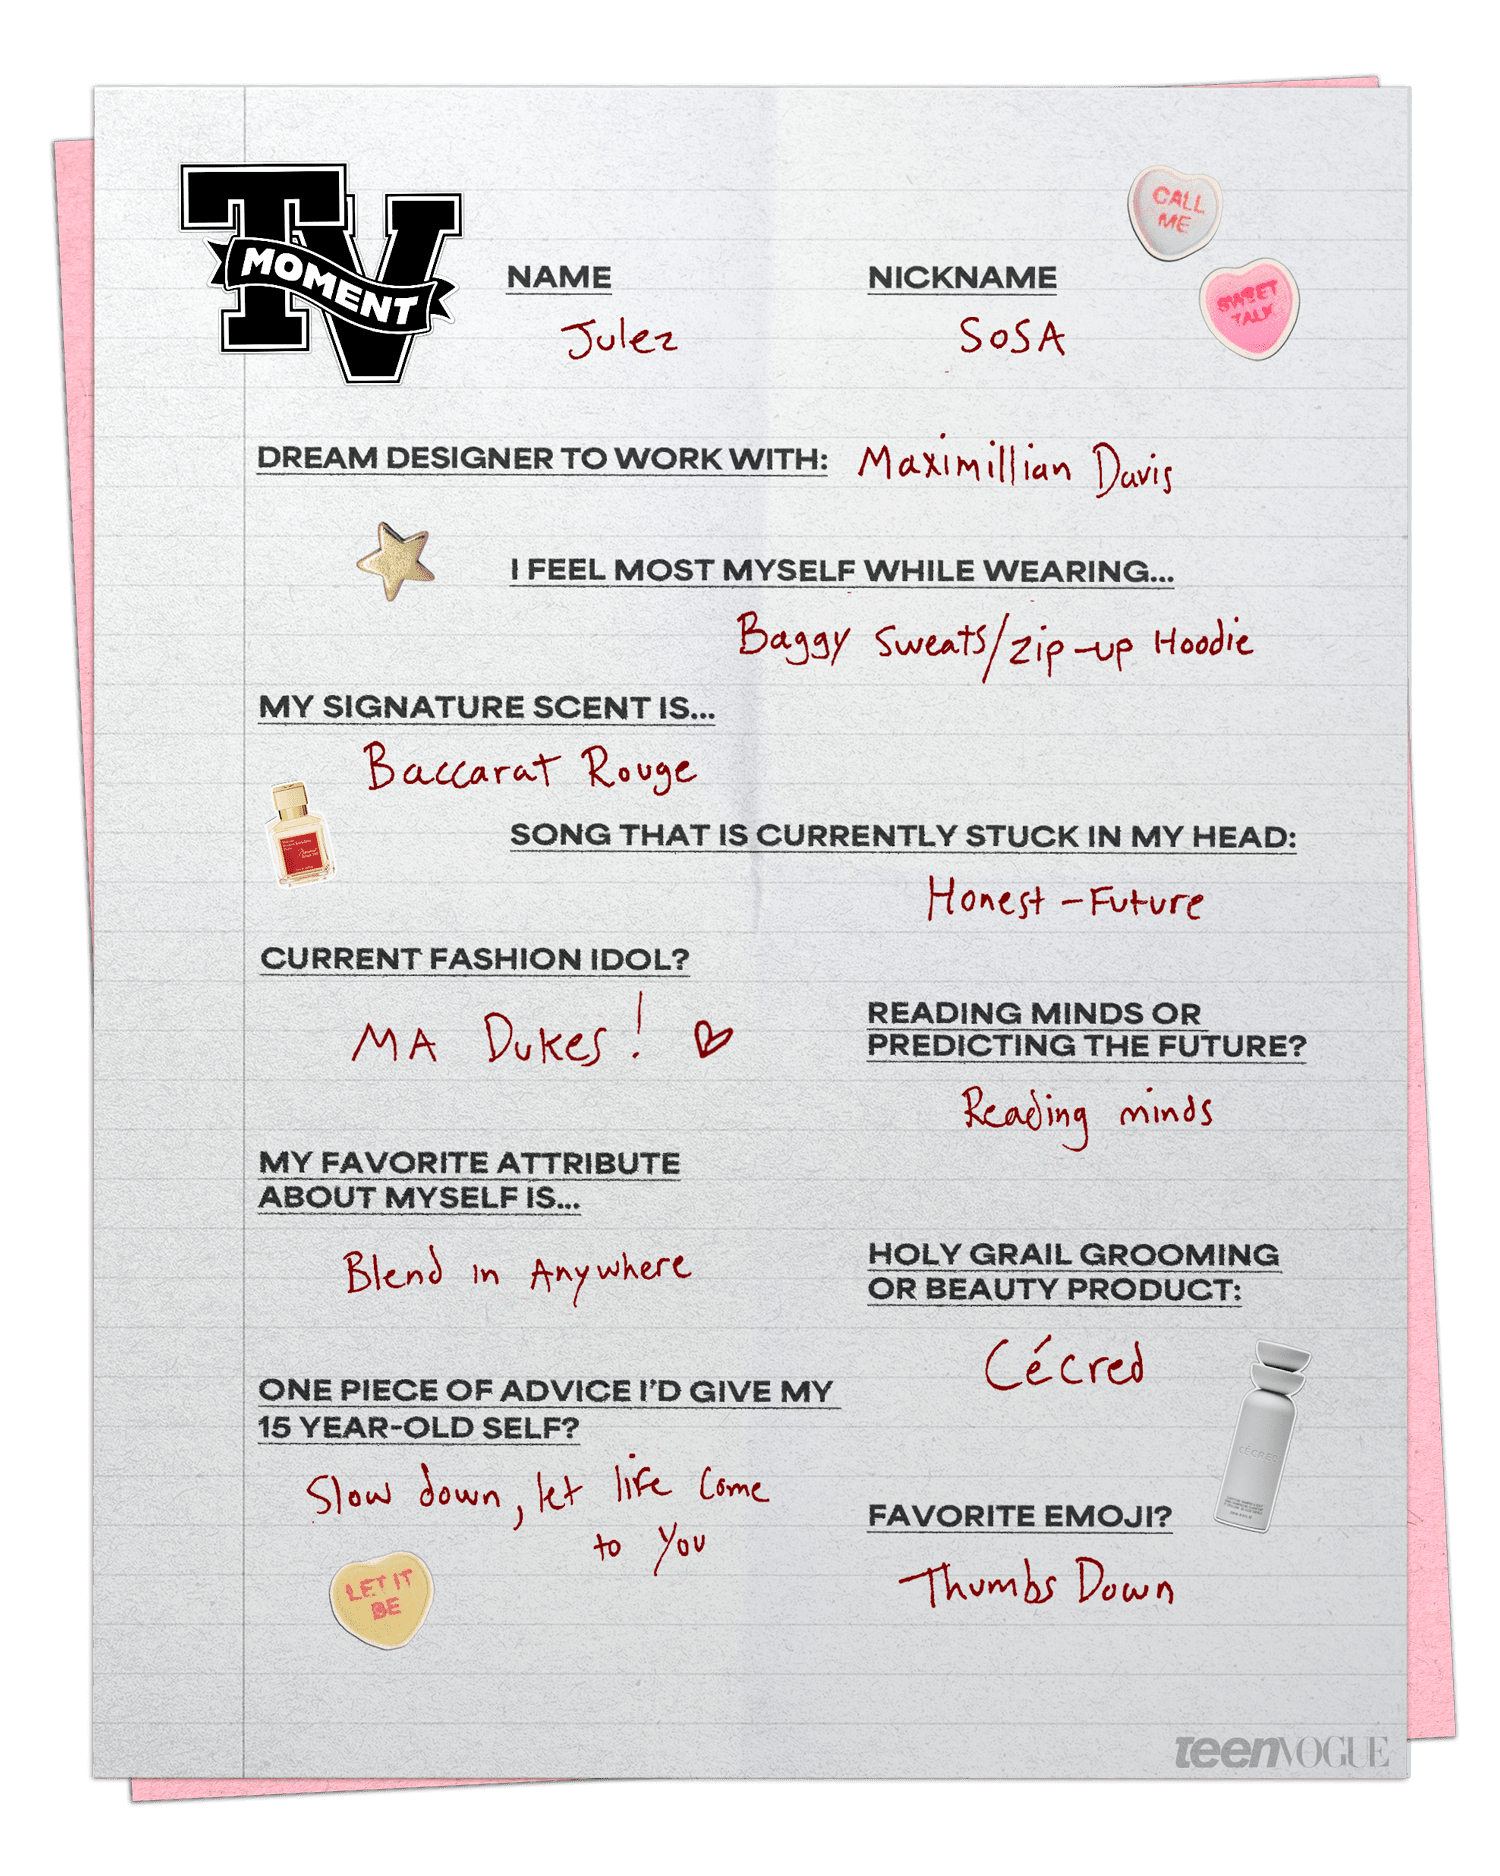 TV
MOMENT
CALL
ME
SWEET
TALK
NAME
Julez
NICKNAME
SOSA
DREAM DESIGNER TO WORK WITH: Maximillian Davis
I FEEL MOST MYSELF WHILE WEARING...
Baggy Sweats/zip-up Hoodie
MY SIGNATURE SCENT IS...
Baccarat Rouge
SONG THAT IS CURRENTLY STUCK IN MY HEAD:
Honest - Future
CURRENT FASHION IDOL?
MA Dukes!
READING MINDS OR
PREDICTING THE FUTURE?
Reading minds
MY FAVORITE ATTRIBUTE
ABOUT MYSELF IS...
Blend in Anywhere
HOLY GRAIL GROOMING
OR BEAUTY PRODUCT:
Cécred
CÉCRED
ONE PIECE OF ADVICE I'D GIVE MY
15 YEAR-OLD SELF?
Slow down, let life come
to You
LET IT
BE
FAVORITE EMOJI?
Thumbs Down
teenVOGUE